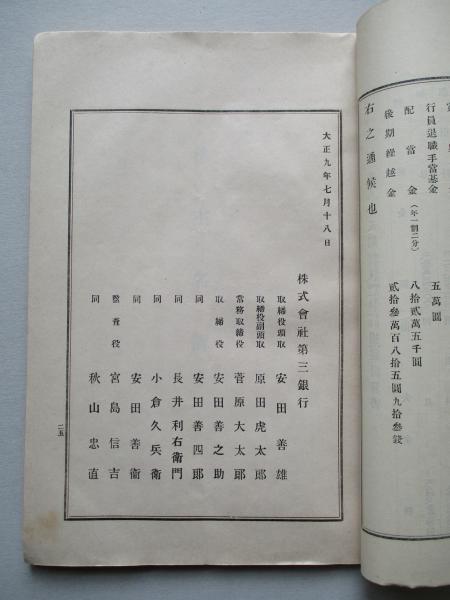 行員退職手當基金　五萬圓
配當金（年一割二分）　八拾貳萬五千圓
後期繰越金　貳拾參萬百八拾五圓九拾參錢
右之通候也
大正九年七月十八日
株式會社第三銀行
取締役頭取　安田善雄
取締役副頭取　原田虎太郎
常務取締役　菅原大太郎
取締役　安田善之助
同　安田善四郎
同　長井利右衞門
同　小倉久兵衞
同　安田善衞
監査役　宮島信吉
同　秋山忠直
二五